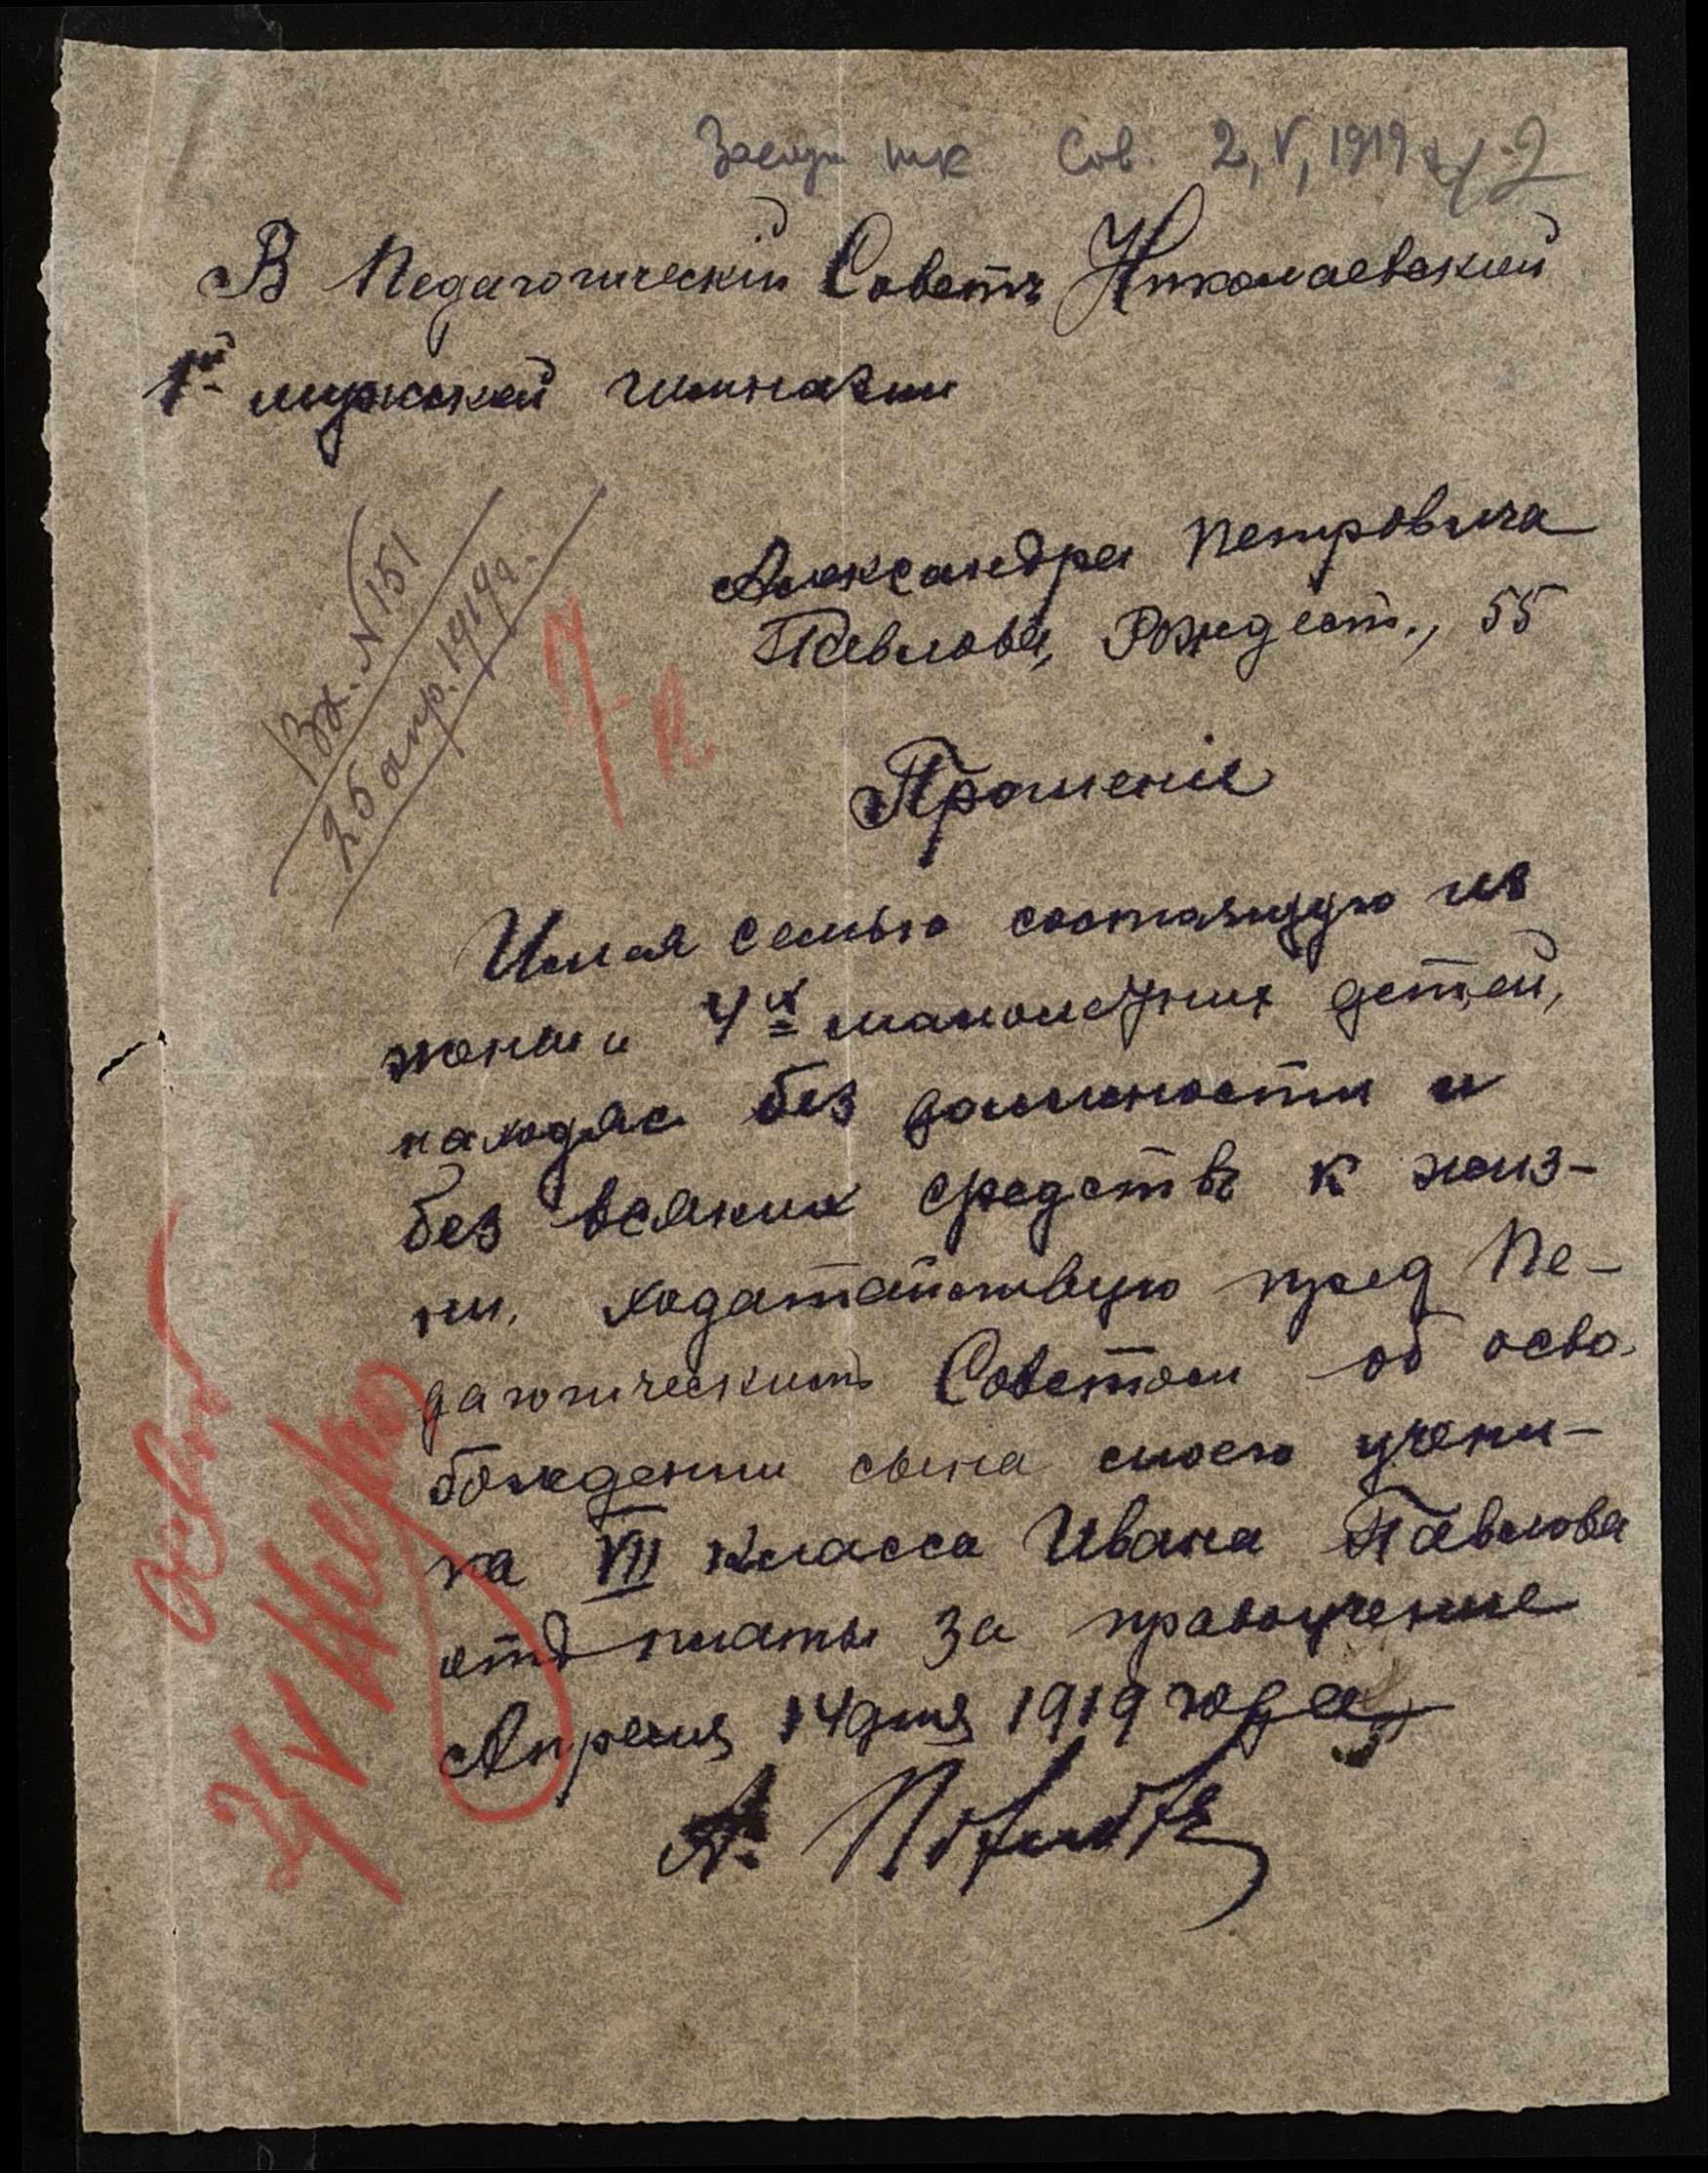 Сов. 2, V, 1919
В Педагогическій Советъ Николаевской
1й мужской гимназии
Александра Петровича
Павлова, Рождест., 55
Вх. № 151
25 апр. 1919 г.
Прошеніе
Имея семью состоящую из
жены и 4х малолетних детей,
находяс без должности и
без всяких средствъ к жиз-
ни, ходатайствую пред Пе-
дагогическимъ Советом об осво-
бождении сына своего учени-
ка VII класса Ивана Павлова
отъ платы за правоучение
Апреля 14 дня 1919 года
А. Павловъ